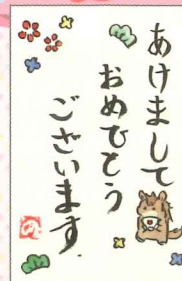 あけまして
おめでとう
ございます.